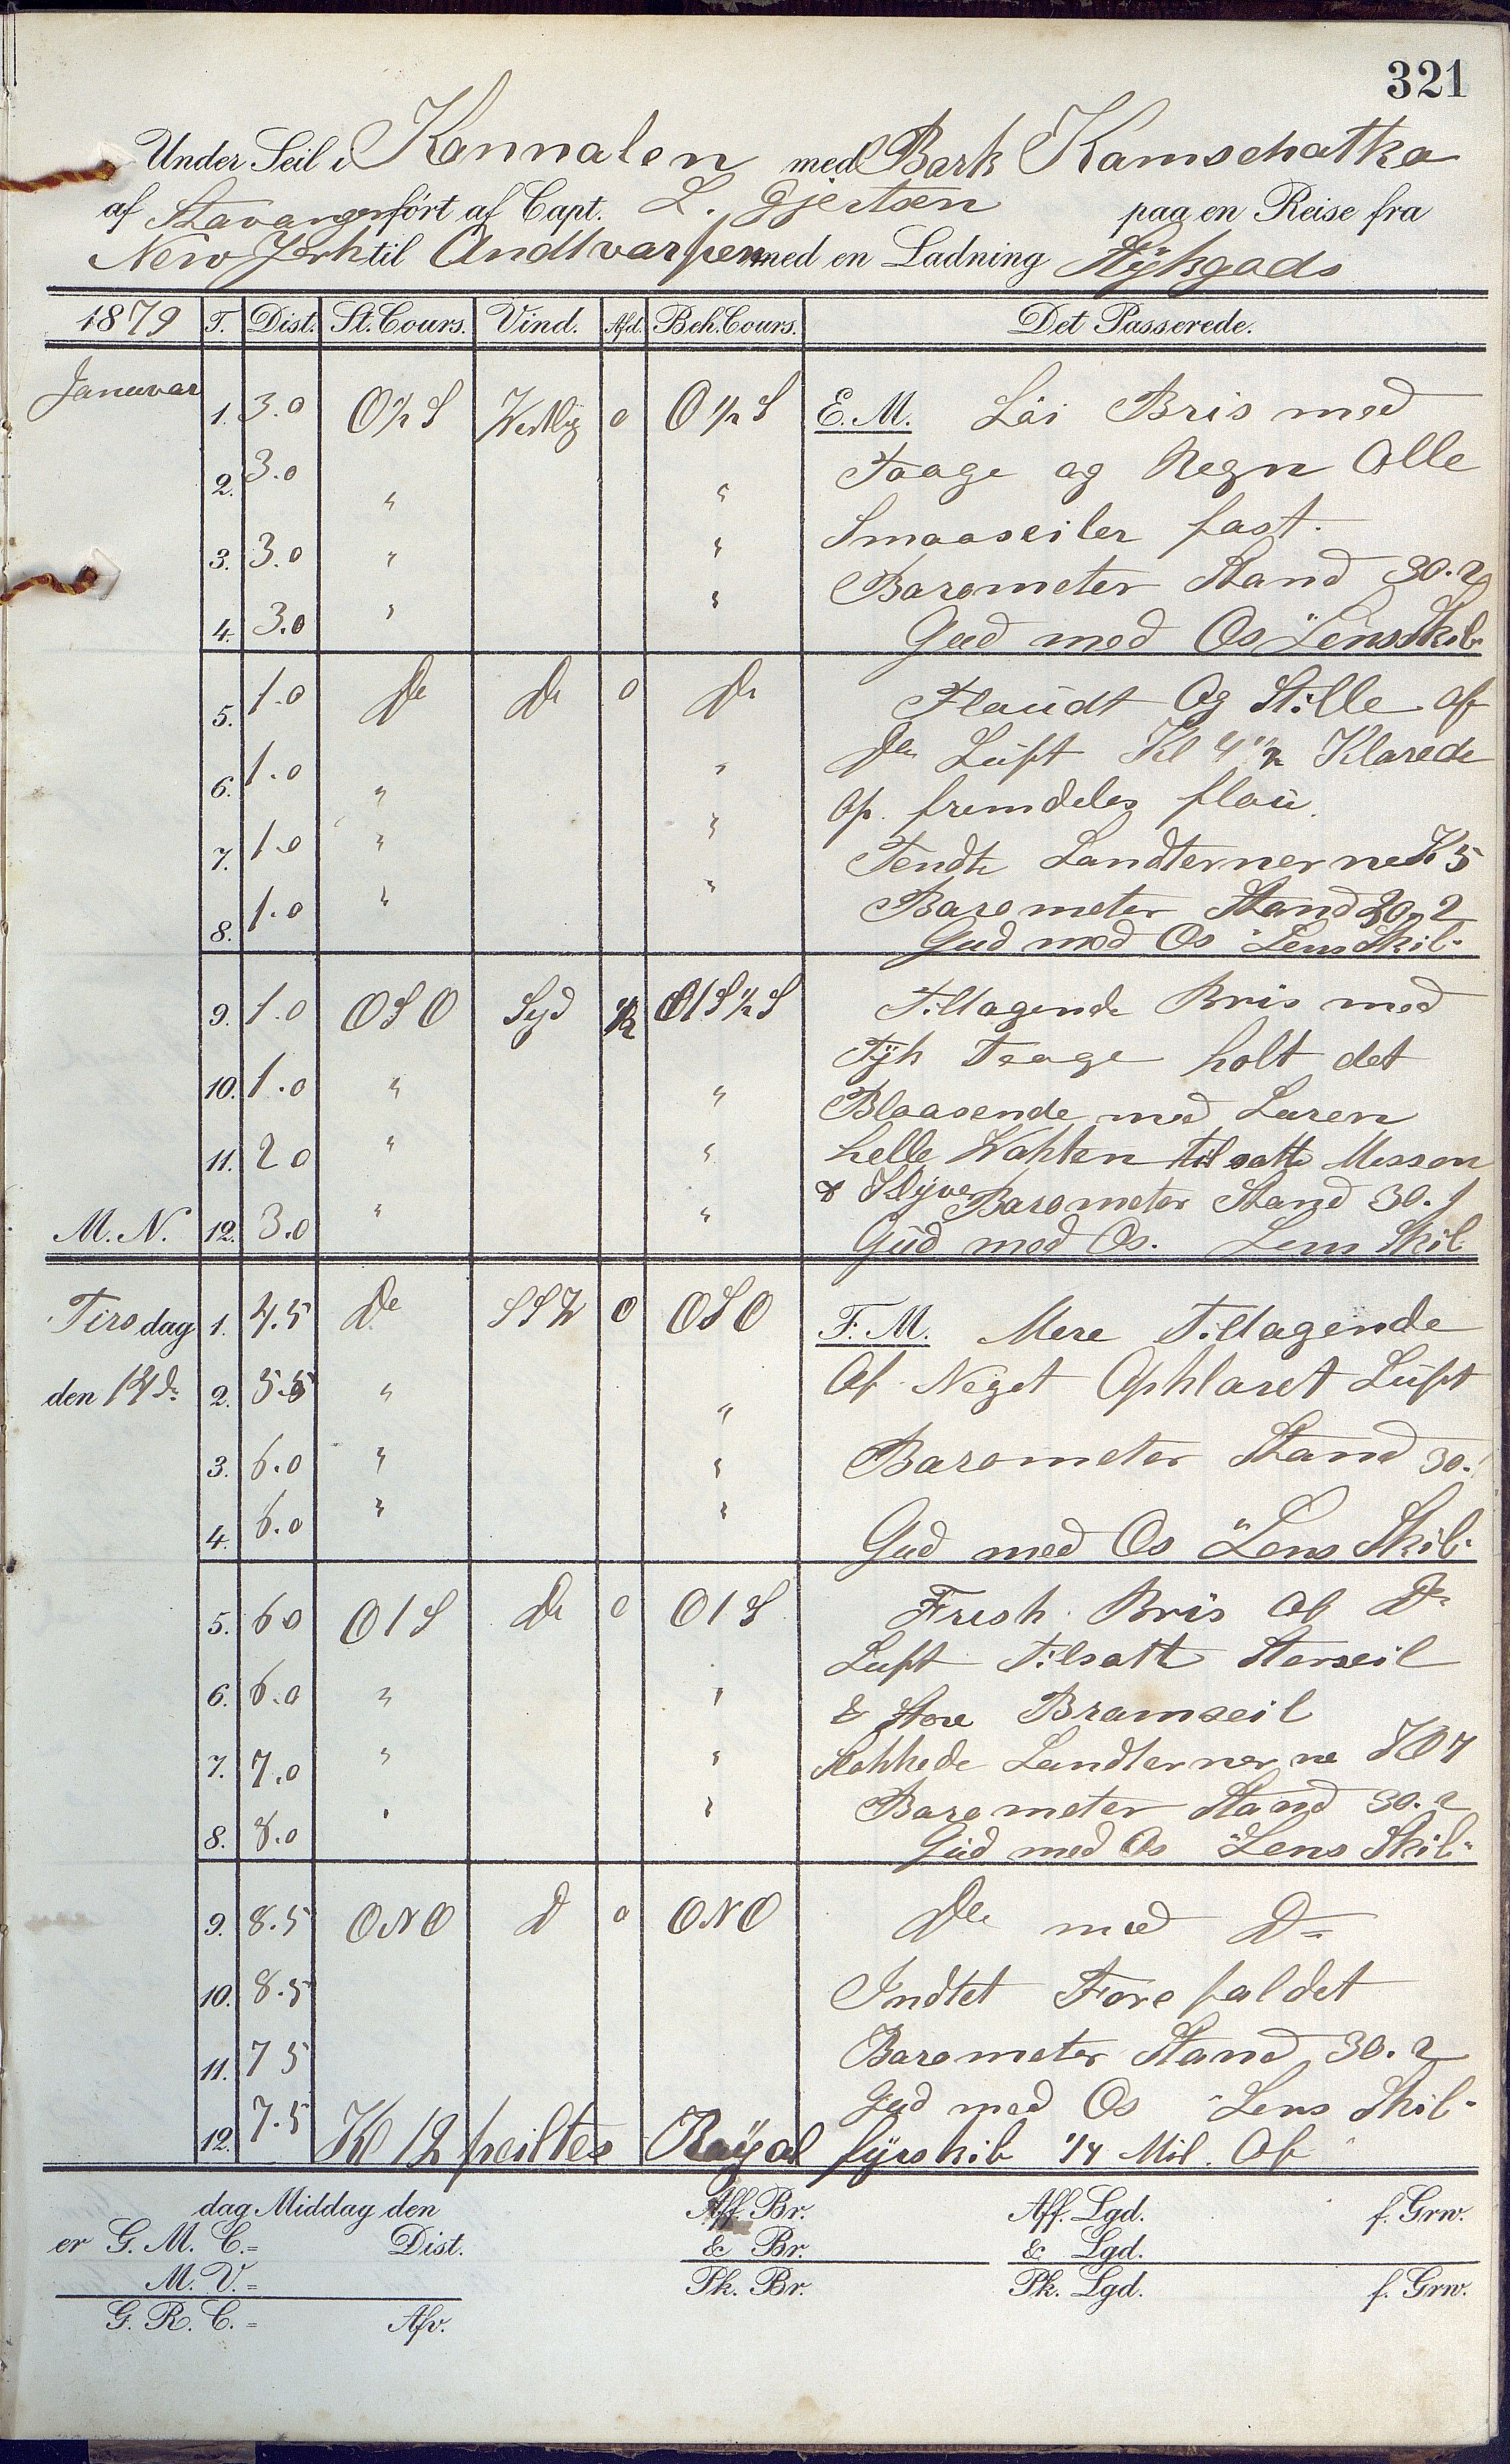 321
Under Seil i Kannalen med Bark Kamschatka
af Stavanger ført af Capt. L. Gjertsen paa en Reise fra
New Jork til Andtvarpen med en Ladning Stÿkgods
1879 T. Dist. St. Cours. Vind. Afd. Beh. Cours. Det Passerede.
Januvar 1. 3.0 O½S Vestlig 0 O½S E. M. Lai Bris med
2. 3.0 " " Taage og Regn Alle
Smaaseiler fast.
3. 3.0 " " Barometer Stand 30.2
4. 3.0 " " Gud med Os "Lens Skib"
5. 1.0 Do Do 0 Do Flaudt Og Stille af
6. 1.0 " " Do Luft Kl 4½ Klarede
op. fremdeles flau.
7. 1.0 " " Tendte Landternerne Kl 5
8. 1.0 " " Barometer Stand 30.2
Gud med Os "Lens Skib"
9. 1.0 OSO Syd ½ O1S½S Tiltagende Bris med
Tÿk Taage holt det
10. 1.0 " " Blaasende med Luren
11. 2.0 " " helle Vakten tilsatte Messan
& Klyver Barometer Stand 30.1
M. N. 12. 3.0 " " Gud med Os. Lens Skib
Tirsdag 1. 4.5 Do SSV 0 OSO F. M. Mere Tiltagende
den 14 d: 2. 5.5 " " Af Noget Opklaret Luft
3. 6.0 " " Barometer Stand 30.1
4. 6.0 " " Gud med Os "Lens Skib"
5. 6.0 O1S Do 0 O1S Fresk Bris Af Do
Luft Tilsatte Storseil
6. 6.0 " " & Store Bramseil
7. 7.0 " " Slokkede Landternerne Kl 7
Barometer Stand 30.2
8. 8.0 " " Gud med Os "Lens Skib"
9. 8.5 ONO D 0 ONO Do med Do
10. 8.5 Indtet Forefaldet
11. 7.5 Barometer Stand 30.2
Gud med Os "Lens Skib"
12. 7.5 Kl 12 peiltes Royal fyrskib ¼ Mil. Af
dag Middag den Aff. Br. Aff. Lgd. f. Grw.
er G. M. C. = Dist. & Br. & Lgd.
M. V. = Pk. Br. Pk. Lgd. f. Grw.
G. R. C. = Afv.